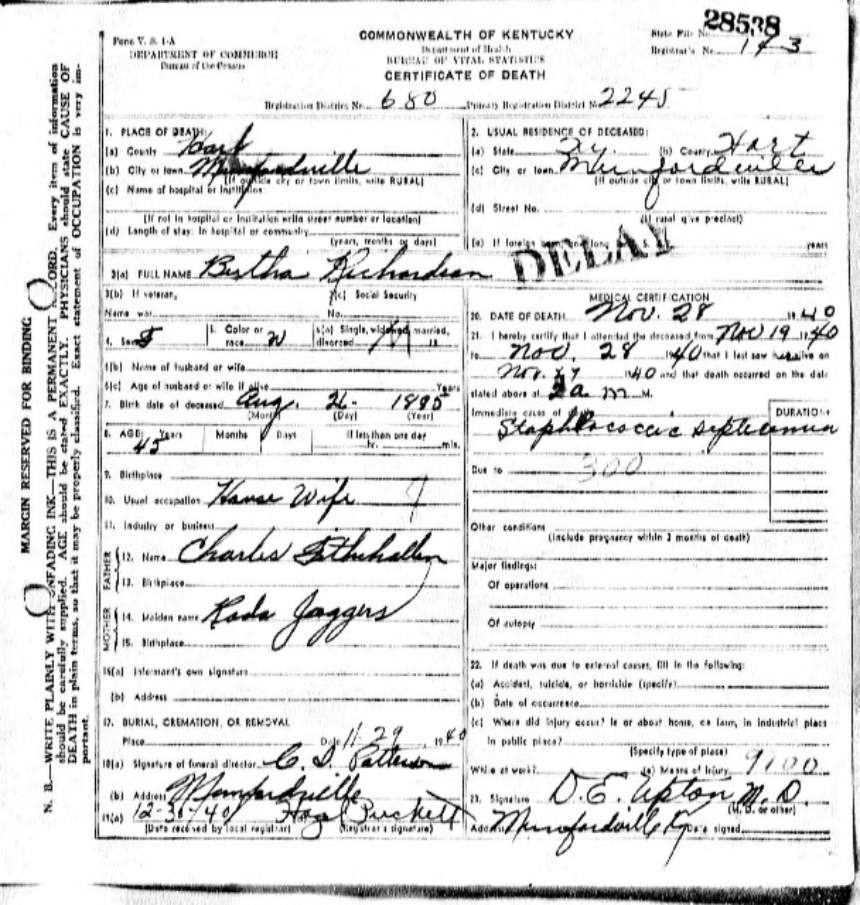 28538
Form V. S. 1-A
DEPARTMENT OF COMMERCE
Bureau of the Census
COMMONWEALTH OF KENTUCKY
Department of Health
BUREAU OF VITAL STATISTICS
CERTIFICATE OF DEATH
State File No.
Registrar's No. 143
Registration District No. 680 Primary Registration District No. 2245
MARGIN RESERVED FOR BINDING
N. B.—WRITE PLAINLY WITH UNFADING INK—THIS IS A PERMANENT RECORD. Every item of information
should be carefully supplied. AGE should be stated EXACTLY. PHYSICIANS should state CAUSE OF
DEATH in plain terms, so that it may be properly classified. Exact statement of OCCUPATION is very im-
portant.
1. PLACE OF DEATH:
(a) County Hart
(b) City or town Munfordville
(If outside city or town limits, write RURAL)
(c) Name of hospital or institution
(If not in hospital or institution write street number or location)
(d) Length of stay: In hospital or community
(years, months or days)
2. USUAL RESIDENCE OF DECEASED:
(a) State Ky (b) County Hart
(c) City or town Munfordville
(If outside city or town limits, write RURAL)
(d) Street No.
(If rural give precinct)
(e) If foreign born, how long years
DELAY
3(a) FULL NAME Bertha Richardson
3(b) If veteran,
Name war
3(c) Social Security
No.
4. Sex F
5. Color or
race W
6(a) Single, widowed, married,
divorced M
6(b) Name of husband or wife
6(c) Age of husband or wife if alive Years
7. Birth date of deceased Aug. 26 1895
(Month) (Day) (Year)
8. AGE: Years Months Days If less than one day
45 hr. min.
9. Birthplace
10. Usual occupation House Wife
11. Industry or business
FATHER
12. Name Charles
13. Birthplace
MOTHER
14. Maiden name Rada Jaggers
15. Birthplace
16(a) Informant's own signature
(b) Address
17. BURIAL, CREMATION, OR REMOVAL
Place Date 11-29, 1940
18(a) Signature of funeral director C. D. Patterson
(b) Address Munfordville
19(a) 12-30-40 Puckett
(Date received by local registrar) (Registrar's signature)
MEDICAL CERTIFICATION
20. DATE OF DEATH Nov. 28 1940
21. I hereby certify that I attended the deceased from Nov 19 1940
to Nov. 28 1940 that I last saw her alive on
Nov. 27 1940 and that death occurred on the date
stated above at 2 a m M.
Immediate cause of death DURATION
Staphlococcic septicemia
Due to 300
Other conditions
(Include pregnancy within 3 months of death)
Major findings:
Of operations
Of autopsy
22. If death was due to external causes, fill in the following:
(a) Accident, suicide, or homicide (specify)
(b) Date of occurrence
(c) Where did injury occur? In or about home, on farm, in industrial place
in public place?
(Specify type of place)
While at work? (e) Means of Injury 9100
23. Signature D. E. Upton M. D.
(M. D. or other)
Address Munfordville Ky Date signed